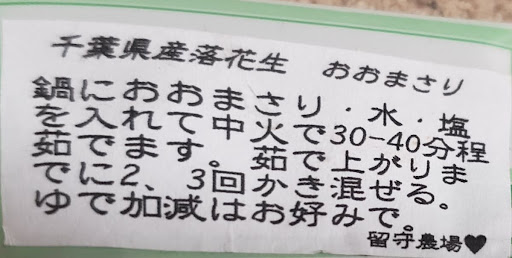 千葉県産落花生　おおまさり
鍋におおまさり・水・塩
を入れて中火で30-40分程
茹でます。茹で上がりま
でに2、3回かき混ぜる。
ゆで加減はお好みで。
留守農場♥